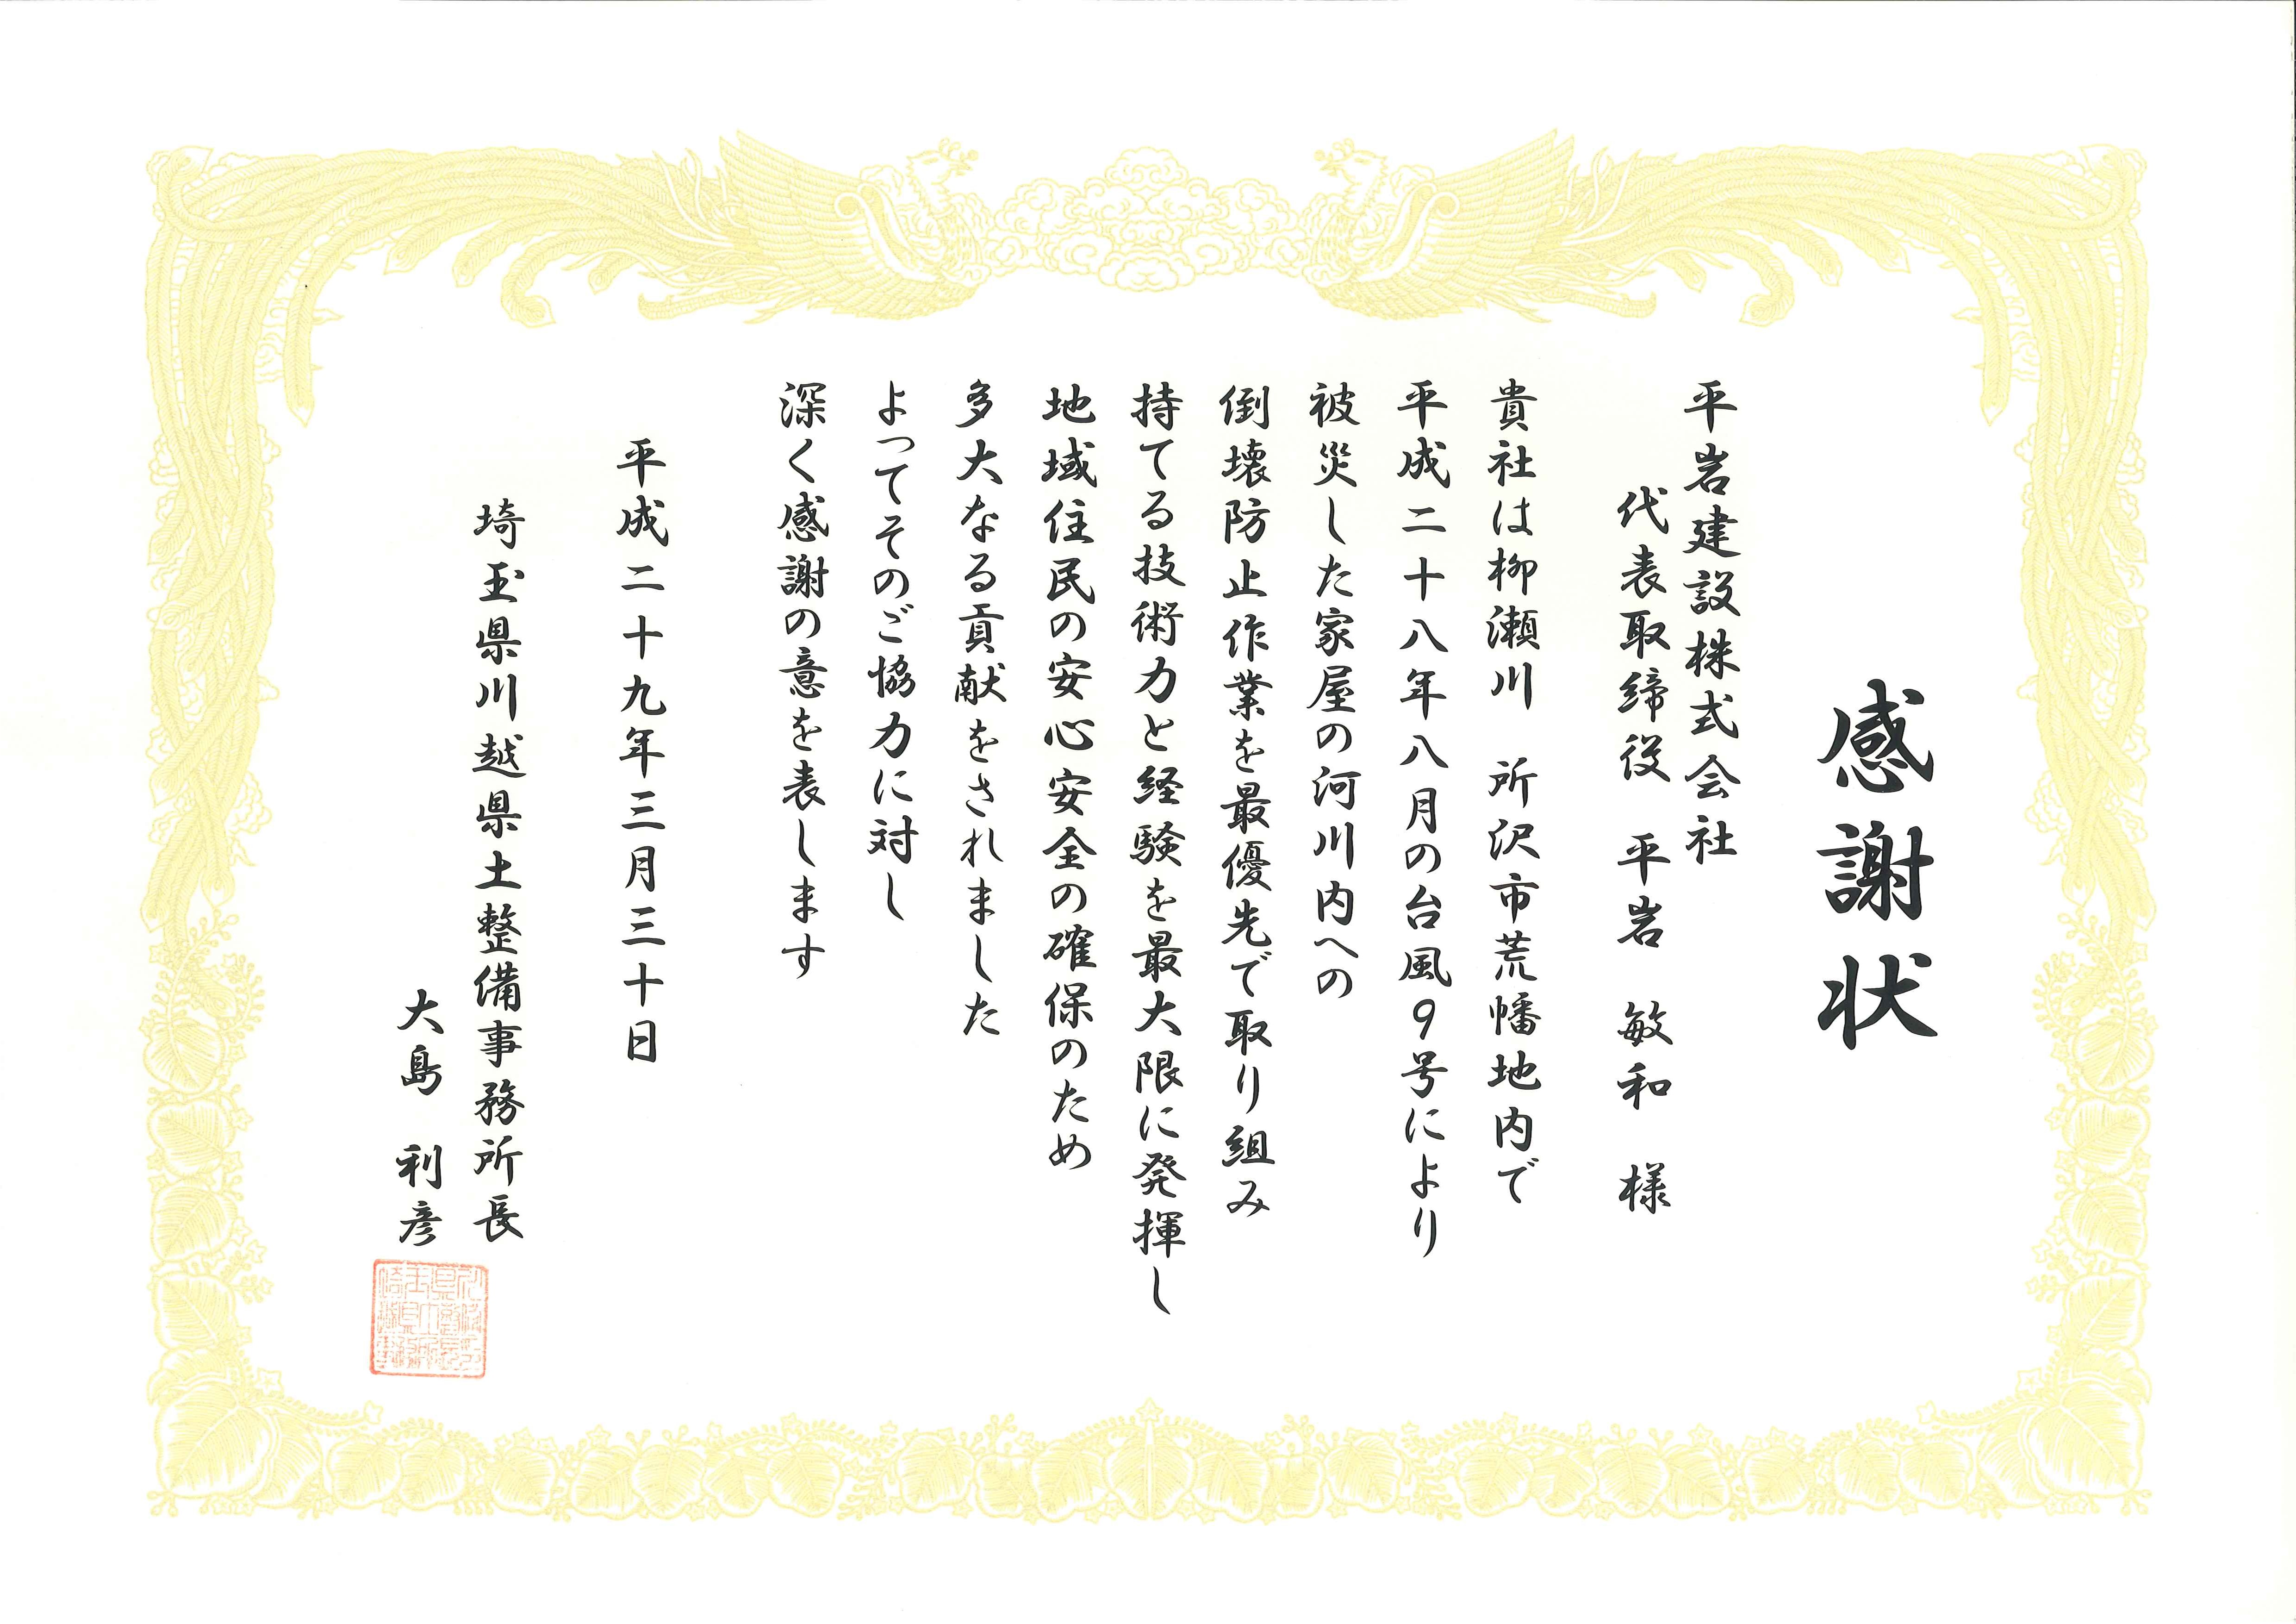 感謝状
平岩建設株式会社
代表取締役　平岩　敏和　様
貴社は柳瀬川　所沢市荒幡地内で
平成二十八年八月の台風9号により
被災した家屋の河川内への
倒壊防止作業を最優先で取り組み
持てる技術力と経験を最大限に発揮し
地域住民の安心安全の確保のため
多大なる貢献をされました
よってそのご協力に対し
深く感謝の意を表します
平成二十九年三月三十日
埼玉県川越県土整備事務所長
大島　利彦